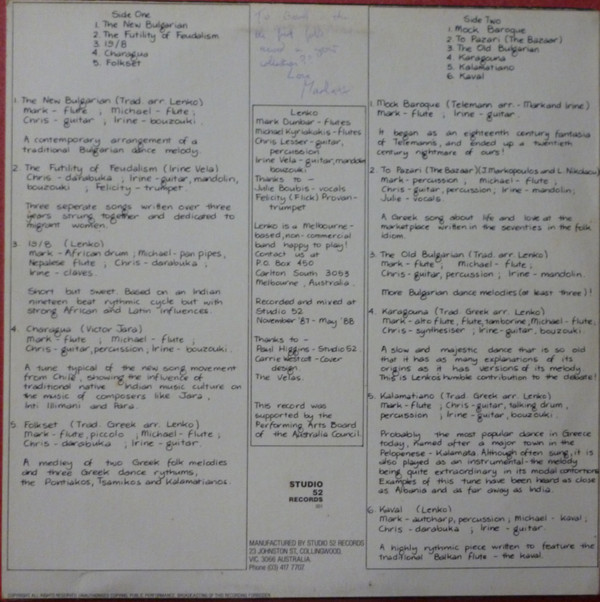 Side One
1. The New Bulgarian
2. The Futility of Feudalism
3. 19/8
4. Charagua
5. Folkset
1. The New Bulgarian (Trad. arr. Lenko)
Mark - flute ; Michael - flute ;
Chris - guitar ; Irine - bouzouki.
A contemporary arrangement of a
traditional Bulgarian dance melody.
2. The Futility of Feudalism (Irine Vela)
Chris - darabuka ; Irine - guitar, mandolin,
bouzouki ; Felicity - trumpet.
Three seperate songs written over three
years strung together and dedicated to
migrant women.
3. 19/8 (Lenko)
Mark - African drum ; Michael - pan pipes,
Nepalese flute ; Chris - darabuka ;
Irine - claves.
Short but sweet. Based on an Indian
nineteen beat rythmic cycle but with
strong African and Latin influences.
4. Charagua (Victor Jara)
Mark - flute ; Michael - flute ;
Chris - guitar, percussion ; Irine - bouzouki.
A tune typical of the new song movement
from Chile, showing the influence of
traditional native Indian music culture on
the music of composers like Jara,
Inti Illimani and Para.
5. Folkset (Trad. Greek arr. Lenko)
Mark - flute, piccolo ; Michael - flute ;
Chris - darabuka ; Irine - guitar.
A medley of two Greek folk melodies
and three Greek dance rythums,
the Pontiakos, Tsamikos and Kalamatianos.
the first folk
record in your
collection?!
Love
Lenko
Mark Dunbar - flutes
Michael Kyriakakis - flutes
Chris Lesser - guitar,
percussion
Irine Vela - guitar, mandolin,
bouzouki
Thanks to -
Julie Boubis - vocals
Felicity (Flick) Provan -
trumpet
Lenko is a Melbourne -
based, non-commercial
band happy to play!
Contact us at
P.O. Box 450
Carlton South 3053
Melbourne, Australia.
Recorded and mixed at
Studio 52
November '87 - May '88
Thanks to -
Paul Higgins - Studio 52
Carrie Westcott - Cover
design.
The Velas.
This record was
supported by the
Performing Arts Board
of the Australia Council.
STUDIO
52
RECORDS
MANUFACTURED BY STUDIO 52 RECORDS
23 JOHNSTON ST, COLLINGWOOD,
VIC, 3066 AUSTRALIA.
Phone (03) 417 7707
Side Two
1. Mock Baroque
2. To Pazari (The Bazaar)
3. The Old Bulgarian
4. Karagouna
5. Kalamatiano
6. Kaval
1. Mock Baroque (Telemann arr. - Mark and Irine)
Mark - flute ; Irine - guitar.
It began as an eighteenth century fantasia
of Telemanns, and ended up a twentieth
century nightmare of ours!
2. To Pazari (The Bazaar) (J. Markopoulos and L. Nikolaou)
Mark - percussion ; Michael - flute ;
Chris - guitar, percussion ; Irine - mandolin;
Julie - vocals.
A Greek song about life and love at the
marketplace written in the seventies in the folk
idiom.
3. The Old Bulgarian (Trad. Lenko)
Mark - flute ; Michael - flute ;
Chris - guitar, percussion ; Irine - mandolin.
More Bulgarian dance melodies (at least three)!
4. Karagouna (Trad. Greek arr. Lenko)
Mark - alto flute, flute, tamborine; Michael - flute;
Chris - synthesiser ; Irine - guitar, bouzouki.
A slow and majestic dance that is so old
that it has as many explanations of its
origins as it has versions of its melody.
This is Lenkos humble contribution to the debate!
5. Kalamatiano (Trad. Greek arr Lenko)
Mark - flute ; Chris - guitar, talking drum,
percussion ; Irine - guitar, bouzouki.
Probably the most popular dance in Greece
today, named after a major town in the
Pelopenese - Kalamata. Although often sung, it is
also played as an instrumental - the melody
being quite extraordinary in its modal contortions.
Examples of this tune have been heard as close
as Albania and as far away as India.
6. Kaval (Lenko)
Mark - autoharp, percussion ; Michael - kaval ;
Chris - darabuka ; Irine - guitar.
A highly rythmic piece written to feature the
traditional Balkan flute - the kaval.
COPYRIGHT. ALL RIGHTS RESERVED. UNAUTHORISED COPYING, PUBLIC PERFORMANCE, BROADCASTING OF THIS RECORDING FORBIDDEN